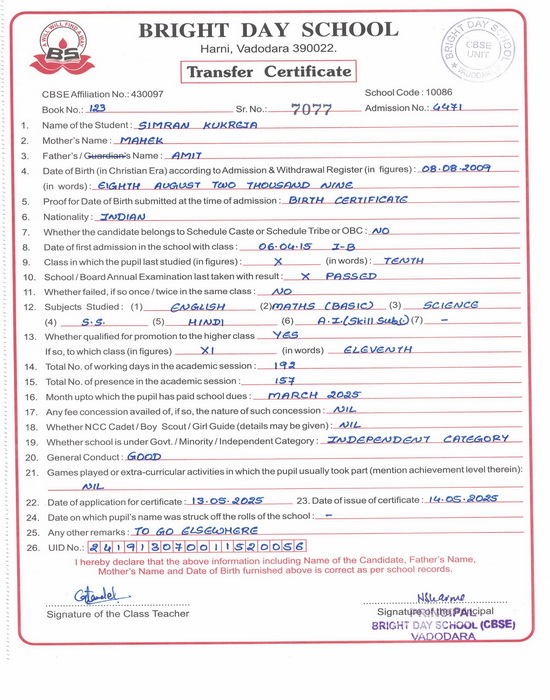 A WILL WILL FIND A WAY
BS
BRIGHT DAY SCHOOL
Harni, Vadodara 390022.
BRIGHT DAY SCHOOL
CBSE
UNIT
VADODARA
Transfer Certificate
CBSE Affiliation No.: 430097 School Code : 10086
Book No.: 123 Sr. No.: 7077 Admission No.: 4471
1. Name of the Student : SIMRAN KUKREJA
2. Mother's Name : MAHEK
3. Father's / Guardian's Name : AMIT
4. Date of Birth (in Christian Era) according to Admission & Withdrawal Register (in figures) : 08.08.2009
(in words) : EIGHTH AUGUST TWO THOUSAND NINE
5. Proof for Date of Birth submitted at the time of admission : BIRTH CERTIFICATE
6. Nationality : INDIAN
7. Whether the candidate belongs to Schedule Caste or Schedule Tribe or OBC : NO
8. Date of first admission in the school with class : 06.04.15 I-B
9. Class in which the pupil last studied (in figures) : X (in words) : TENTH
10. School / Board Annual Examination last taken with result : X PASSED
11. Whether failed, if so once / twice in the same class : NO
12. Subjects Studied : (1) ENGLISH (2) MATHS (BASIC) (3) SCIENCE
(4) S.S. (5) HINDI (6) A.I. (Skill Subj.) (7) -
13. Whether qualified for promotion to the higher class YES
If so, to which class (in figures) XI (in words) ELEVENTH
14. Total No. of working days in the academic session : 192
15. Total No. of presence in the academic session : 157
16. Month upto which the pupil has paid school dues : MARCH 2025
17. Any fee concession availed of, if so, the nature of such concession : NIL
18. Whether NCC Cadet / Boy Scout / Girl Guide (details may be given) : NIL
19. Whether school is under Govt. / Minority / Independent Category : INDEPENDENT CATEGORY
20. General Conduct : GOOD
21. Games played or extra-curricular activities in which the pupil usually took part (mention achievement level therein) :
NIL
22. Date of application for certificate : 13.05.2025 23. Date of issue of certificate : 14.05.2025
24. Date on which pupil's name was struck off the rolls of the school : -
25. Any other remarks : TO GO ELSEWHERE
26. UID No.: 241913070011520056
I hereby declare that the above information including Name of the Candidate, Father's Name,
Mother's Name and Date of Birth furnished above is correct as per school records.
Signature of the Class Teacher Signature of the Principal
PRINCIPAL
BRIGHT DAY SCHOOL (CBSE)
VADODARA